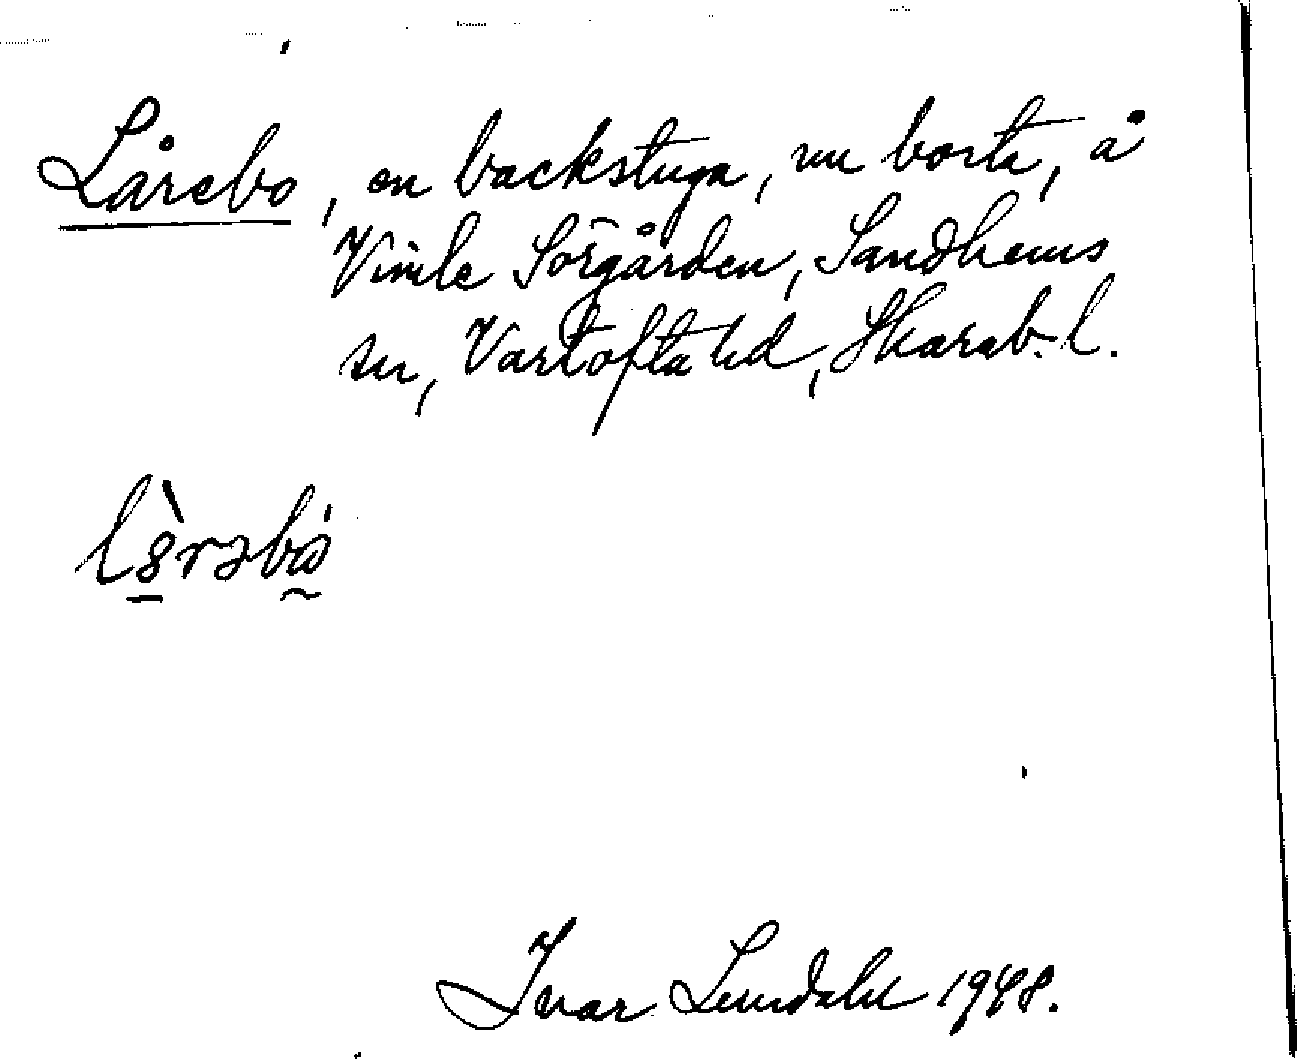 Lårebo, en backstuga, nu borta, å
Vimle Sörgården, Sandhems
sn, Vartofta hd, Skarab. l.
Ivar Lundahl 1948.